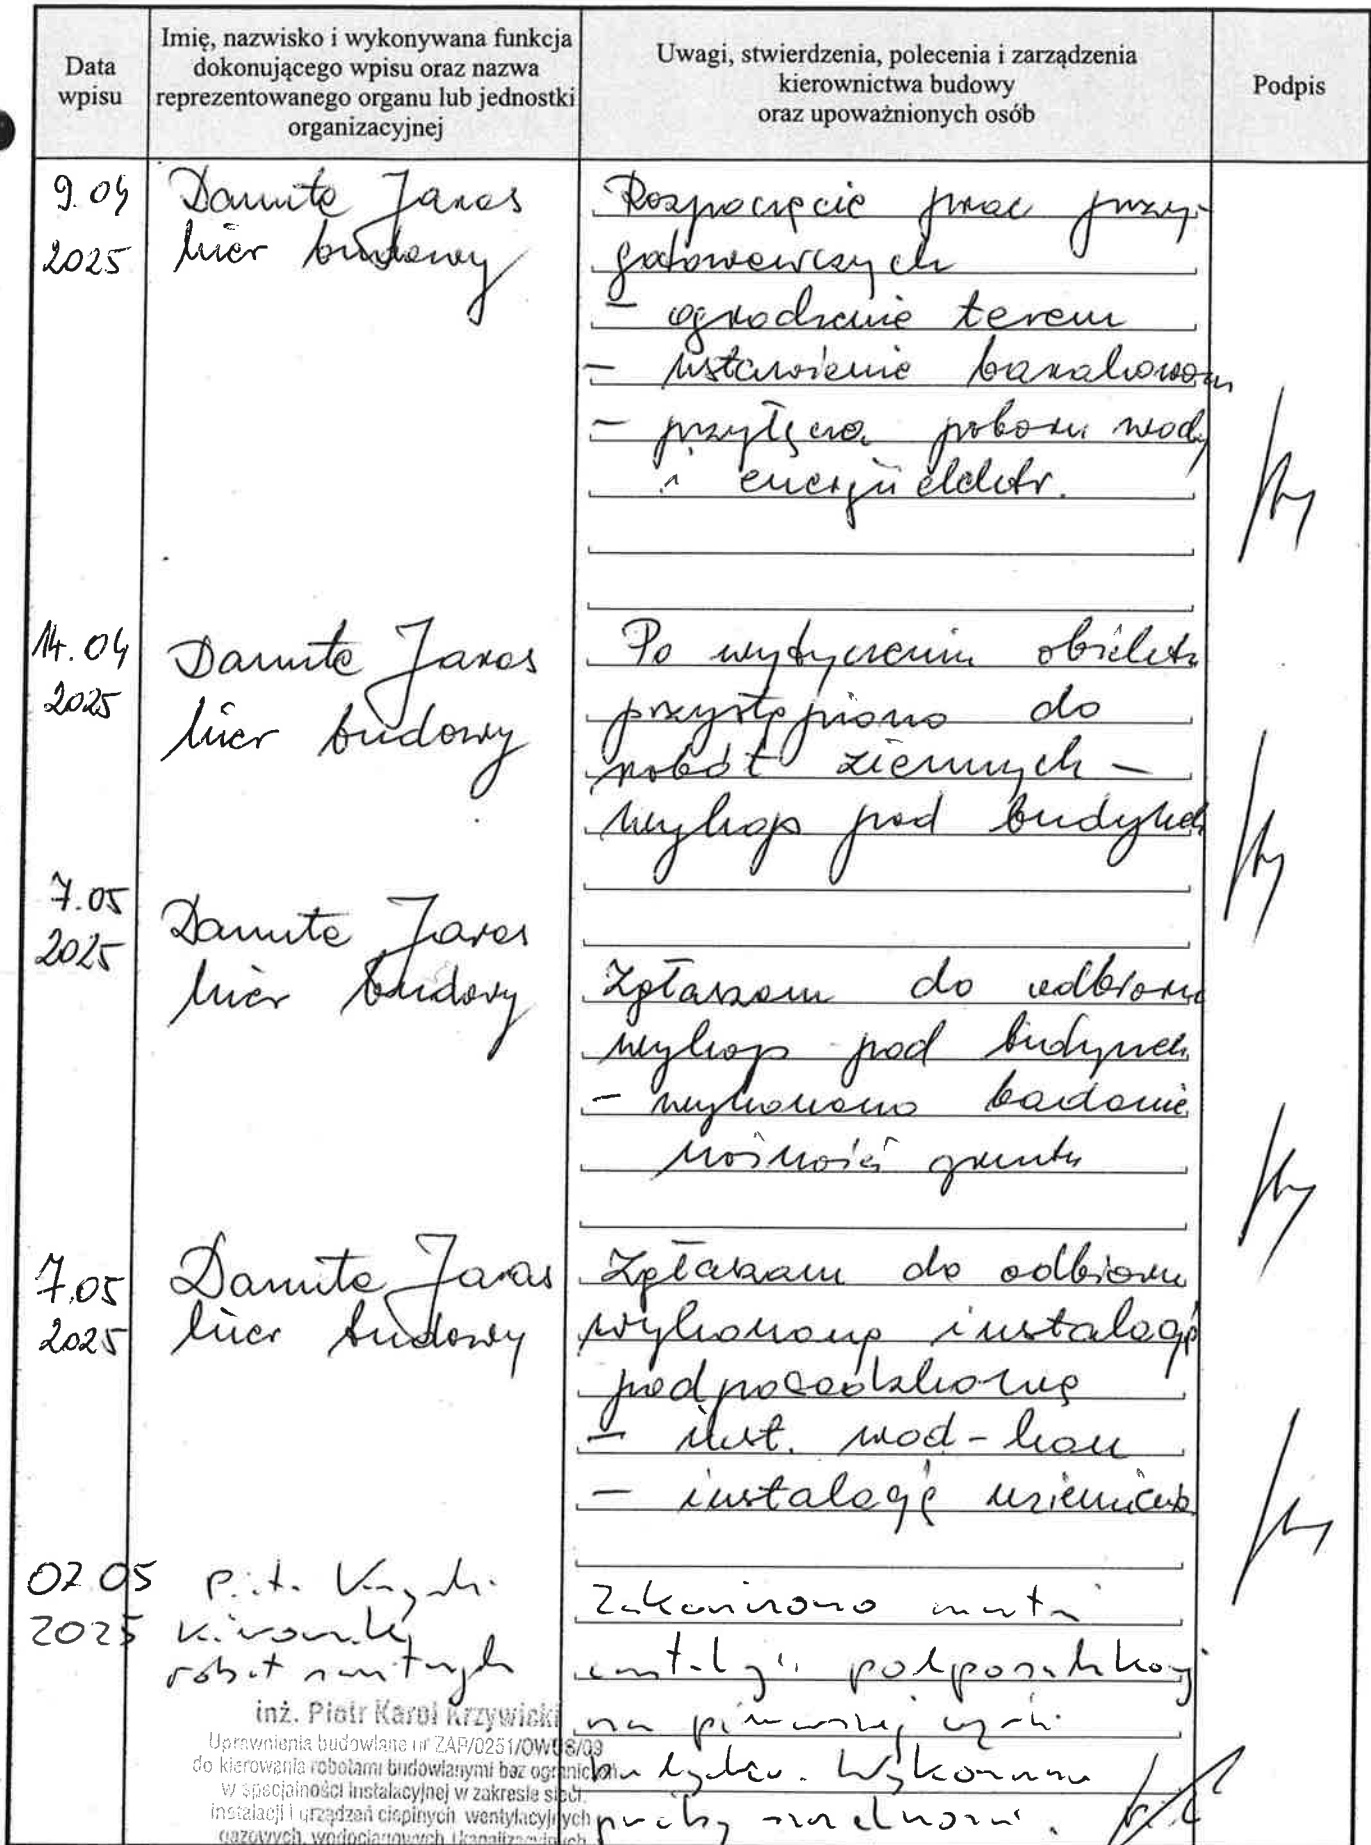 Data
wpisu
Imię, nazwisko i wykonywana funkcja
dokonującego wpisu oraz nazwa
reprezentowanego organu lub jednostki
organizacyjnej
Uwagi, stwierdzenia, polecenia i zarządzenia
kierownictwa budowy
oraz upoważnionych osób
Podpis
9.04
2025
Danuta Jaros
kier budowy
Rozpoczęcie prac przy-
gotowawczych
- ogrodzenie terenu
- ustawienie barakowozu
- przyłącza poboru wody
i energii elektr.
14.04
2025
Danuta Jaros
kier budowy
Po wytyczeniu obiektu
przystąpiono do
robót ziemnych -
wykop pod budynek
7.05
2025
Danuta Jaros
kier budowy
Zgłaszam do odbioru
wykop pod budynek
- wykonano badanie
nośności gruntu
7.05
2025
Danuta Jaros
kier budowy
Zgłaszam do odbioru
wykonaną instalację
podposadzkową
- inst. wod-kan
- instalację uziemienia
07.05
2025
Kierownik
robót sanitarnych
Zakończono montaż
instalacji podposadzkowej
na pierwszej części
budynku. Wykonano
próby szczelności.
inż. Piotr Karol Krzywicki
Uprawnienia budowlane nr ZAP/0251/OWOS/09
do kierowania robotami budowlanymi bez ograniczeń
w specjalności instalacyjnej w zakresie sieci,
instalacji i urządzeń cieplnych, wentylacyjnych
gazowych, wodociągowych i kanalizacyjnych